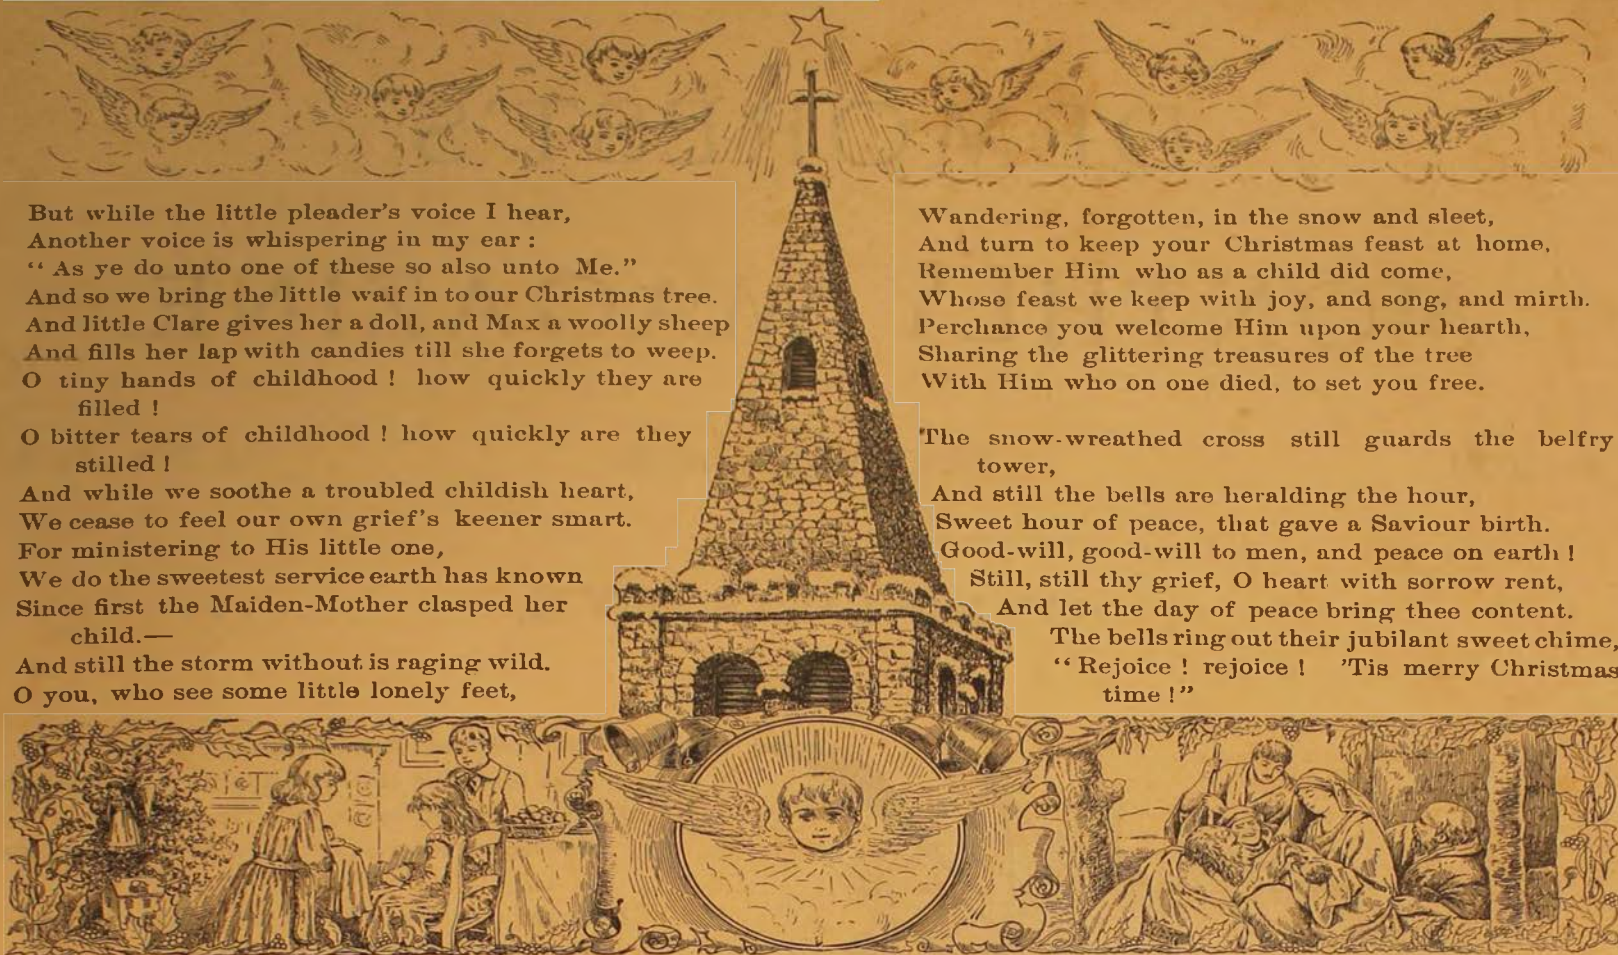 But while the little pleader's voice I hear,
Another voice is whispering in my ear :
“ As ye do unto one of these so also unto Me.”
And so we bring the little waif in to our Christmas tree.
And little Clare gives her a doll, and Max a woolly sheep
And fills her lap with candies till she forgets to weep.
O tiny hands of childhood ! how quickly they are
filled !
O bitter tears of childhood ! how quickly are they
stilled !
And while we soothe a troubled childish heart,
We cease to feel our own grief's keener smart.
For ministering to His little one,
We do the sweetest service earth has known
Since first the Maiden-Mother clasped her
child.—
And still the storm without is raging wild.
O you, who see some little lonely feet,
Wandering, forgotten, in the snow and sleet,
And turn to keep your Christmas feast at home,
Remember Him who as a child did come,
Whose feast we keep with joy, and song, and mirth.
Perchance you welcome Him upon your hearth,
Sharing the glittering treasures of the tree
With Him who on one died, to set you free.
The snow-wreathed cross still guards the belfry
tower,
And still the bells are heralding the hour,
Sweet hour of peace, that gave a Saviour birth.
Good-will, good-will to men, and peace on earth !
Still, still thy grief, O heart with sorrow rent,
And let the day of peace bring thee content.
The bells ring out their jubilant sweet chime,
“ Rejoice ! rejoice ! 'Tis merry Christmas
time !”